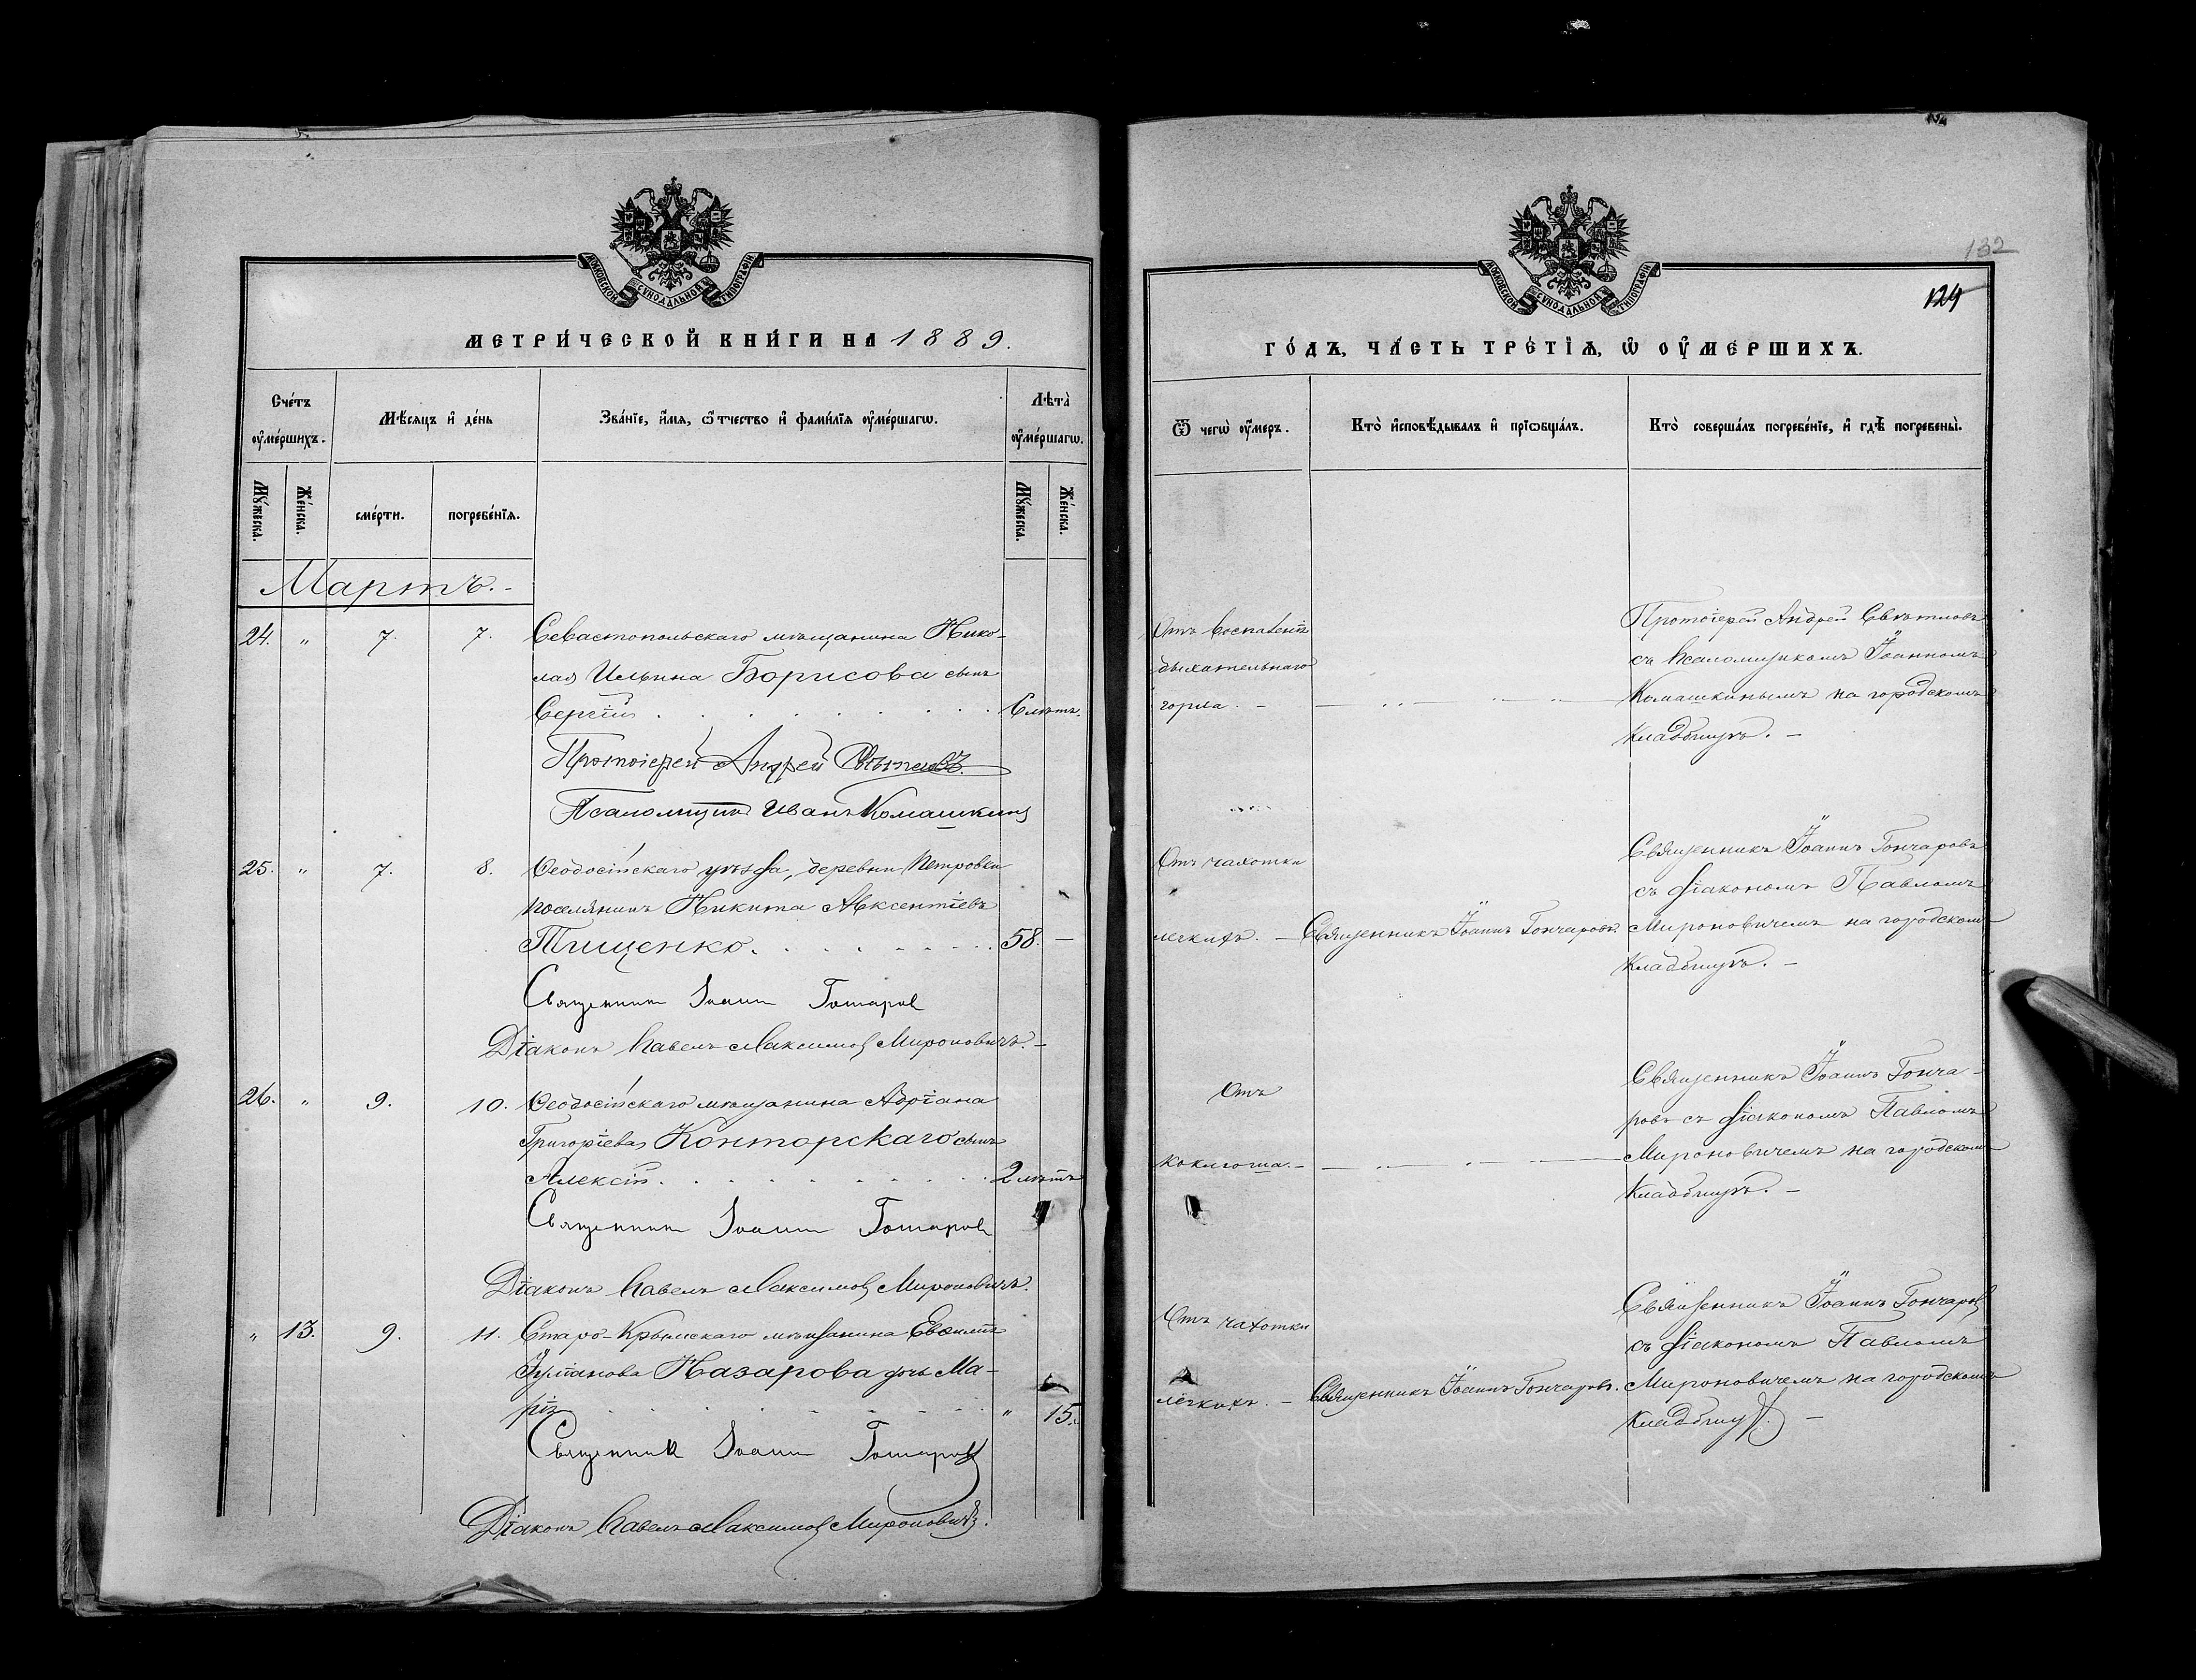 132
124
МОСКОВСКОЙ СѴНОДАЛЬНОЙ ТИПОГРАФІИ
МЕТРИ́ЧЕСКОЙ КНИ́ГИ НА 1889.
Сче́тъ оу҆ме́ршихъ.
Мѣ́сяцъ и҆ де́нь
Зва́нїе, и҆́мѧ, ѻ҆́тчество и҆ фами́лїѧ оу҆ме́ршагѡ.
Лѣ́та оу҆ме́ршагѡ.
Мꙋ́жеска.
Же́нска.
сме́рти.
погребе́нїѧ.
Мꙋ́жеска.
Же́нска.
Мартъ. -
24. " 7. 7. Севастопольскаго мѣщанина Нико-
лая Ильина Борисова сынъ
Сергій . . . . . . . . 6 лѣтъ.
Протоіерей Андрей Свѣтловъ.
Псаломщикъ Иванъ Комашкинъ
25. " 7. 8. Ѳеодосійскаго уѣзда, деревни Петровки
поселянинъ Никита Авксентіевъ
Тищенко. . . . . . . . 58. —
Священникъ Іоаннъ Гончаров
Діаконъ Павелъ Максимов Мироновичъ. -
26. " 9. 10. Ѳеодосійскаго мѣщанина Адріана
Григоріева Конторскаго сынъ
Алексій. . . . . . . . 2 лѣтъ
Священникъ Іоаннъ Гончаров
Діаконъ Павелъ Максимов Мироновичъ.
" 13. 9. 11. Старо-Крымскаго мѣщанина
Назарова дочь Ма-
рія . . . . . . . " 15 л.
Священникъ Іоаннъ Гончаров
Діаконъ Павелъ Максимов Мироновичъ.
МОСКОВСКОЙ СѴНОДАЛЬНОЙ ТИПОГРАФІИ
ГО́ДЪ, ЧА́СТЬ ТРЕ́ТІѦ, Ѽ ОУ҆МЕ́РШИХЪ.
Ѿ чегѡ̀ оу҆́меръ.
Кто̀ и҆сповѣ́дывалъ и҆ прїѡбща́лъ.
Кто̀ соверша́лъ погребе́нїе, и҆ гдѣ̀ погребены̀.
Отъ воспаленія
дыхательнаго
горла. -
Протоіерей Андрей Свѣтловъ
съ Псаломщикомъ Іоанномъ
Комашкинымъ на городскомъ
кладбищѣ. —
Отъ чахотки
легкихъ. — Священникъ Іоаннъ Гончаровъ.
Священникъ Іоаннъ Гончаровъ
съ діакономъ Павломъ
Мироновичемъ на городскомъ
кладбищѣ. —
Отъ
коклюша. -
Священникъ Іоаннъ Гонча-
ровъ съ діакономъ Павломъ
Мироновичемъ на городскомъ
кладбищѣ. —
Отъ чахотки
легкихъ. — Священникъ Іоаннъ Гончаровъ.
Священникъ Іоаннъ Гончаровъ
съ діакономъ Павломъ
Мироновичемъ на городскомъ
кладбищѣ. —